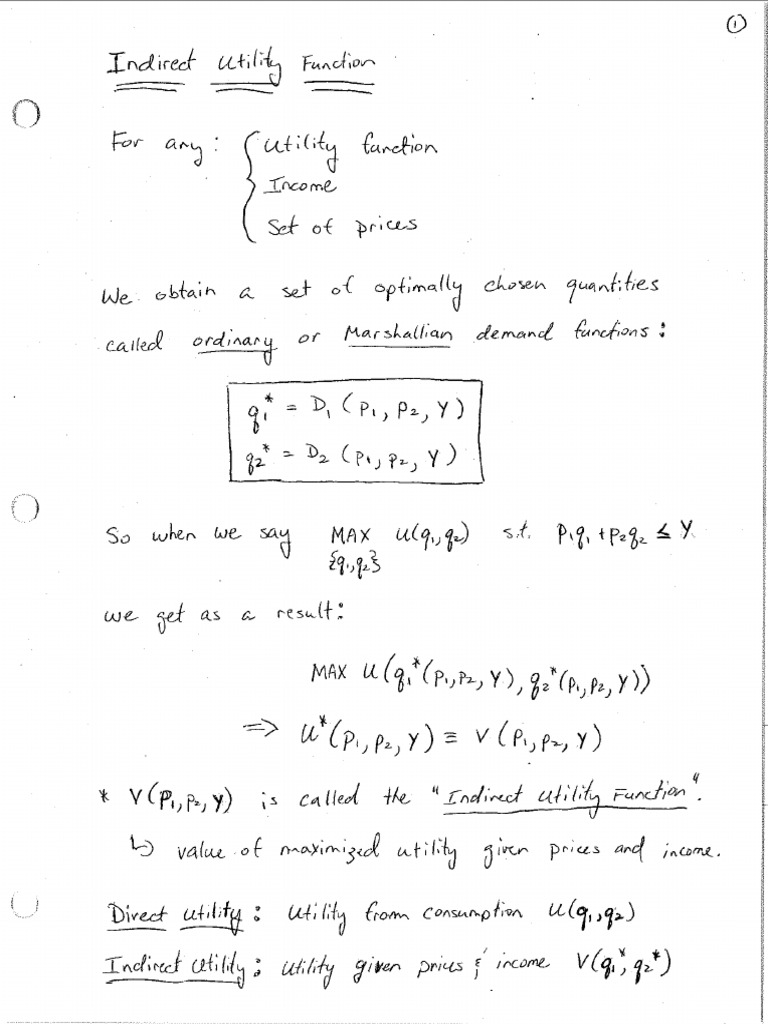 ①
Indirect Utility Function
For any: { Utility function
Income
Set of prices
We obtain a set of optimally chosen quantities
called ordinary or Marshallian demand functions:
q₁* = D₁ (P₁, P₂, Y)
q₂* = D₂ (P₁, P₂, Y)
So when we say MAX U(q₁,q₂) s.t. P₁q₁ + P₂q₂ ≤ Y
{q₁,q₂}
we get as a result:
MAX U(q₁*(P₁,P₂,Y), q₂*(P₁,P₂,Y))
⇒ U*(P₁,P₂,Y) ≡ V(P₁,P₂,Y)
* V(P₁,P₂,Y) is called the "Indirect Utility Function".
↳ value of maximized utility given prices and income.
Direct Utility: Utility from consumption U(q₁,q₂)
Indirect Utility: Utility given prices & income V(q₁*,q₂*)